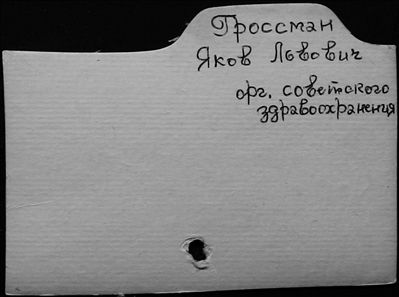 Гроссман
Яков Львович
орг. советского
здравоохранения